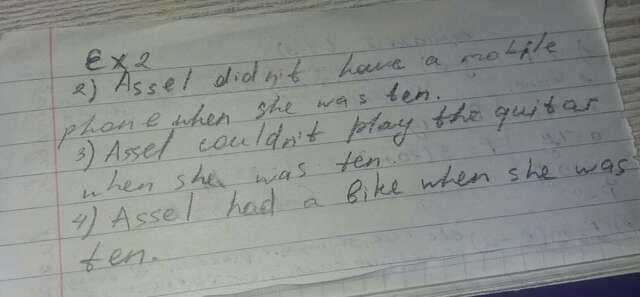 Ex 2
2) Assel didn't have a mobile
phone when she was ten.
3) Assel couldn't play the quitar
when she was ten.
4) Assel had a bike when she was
ten.